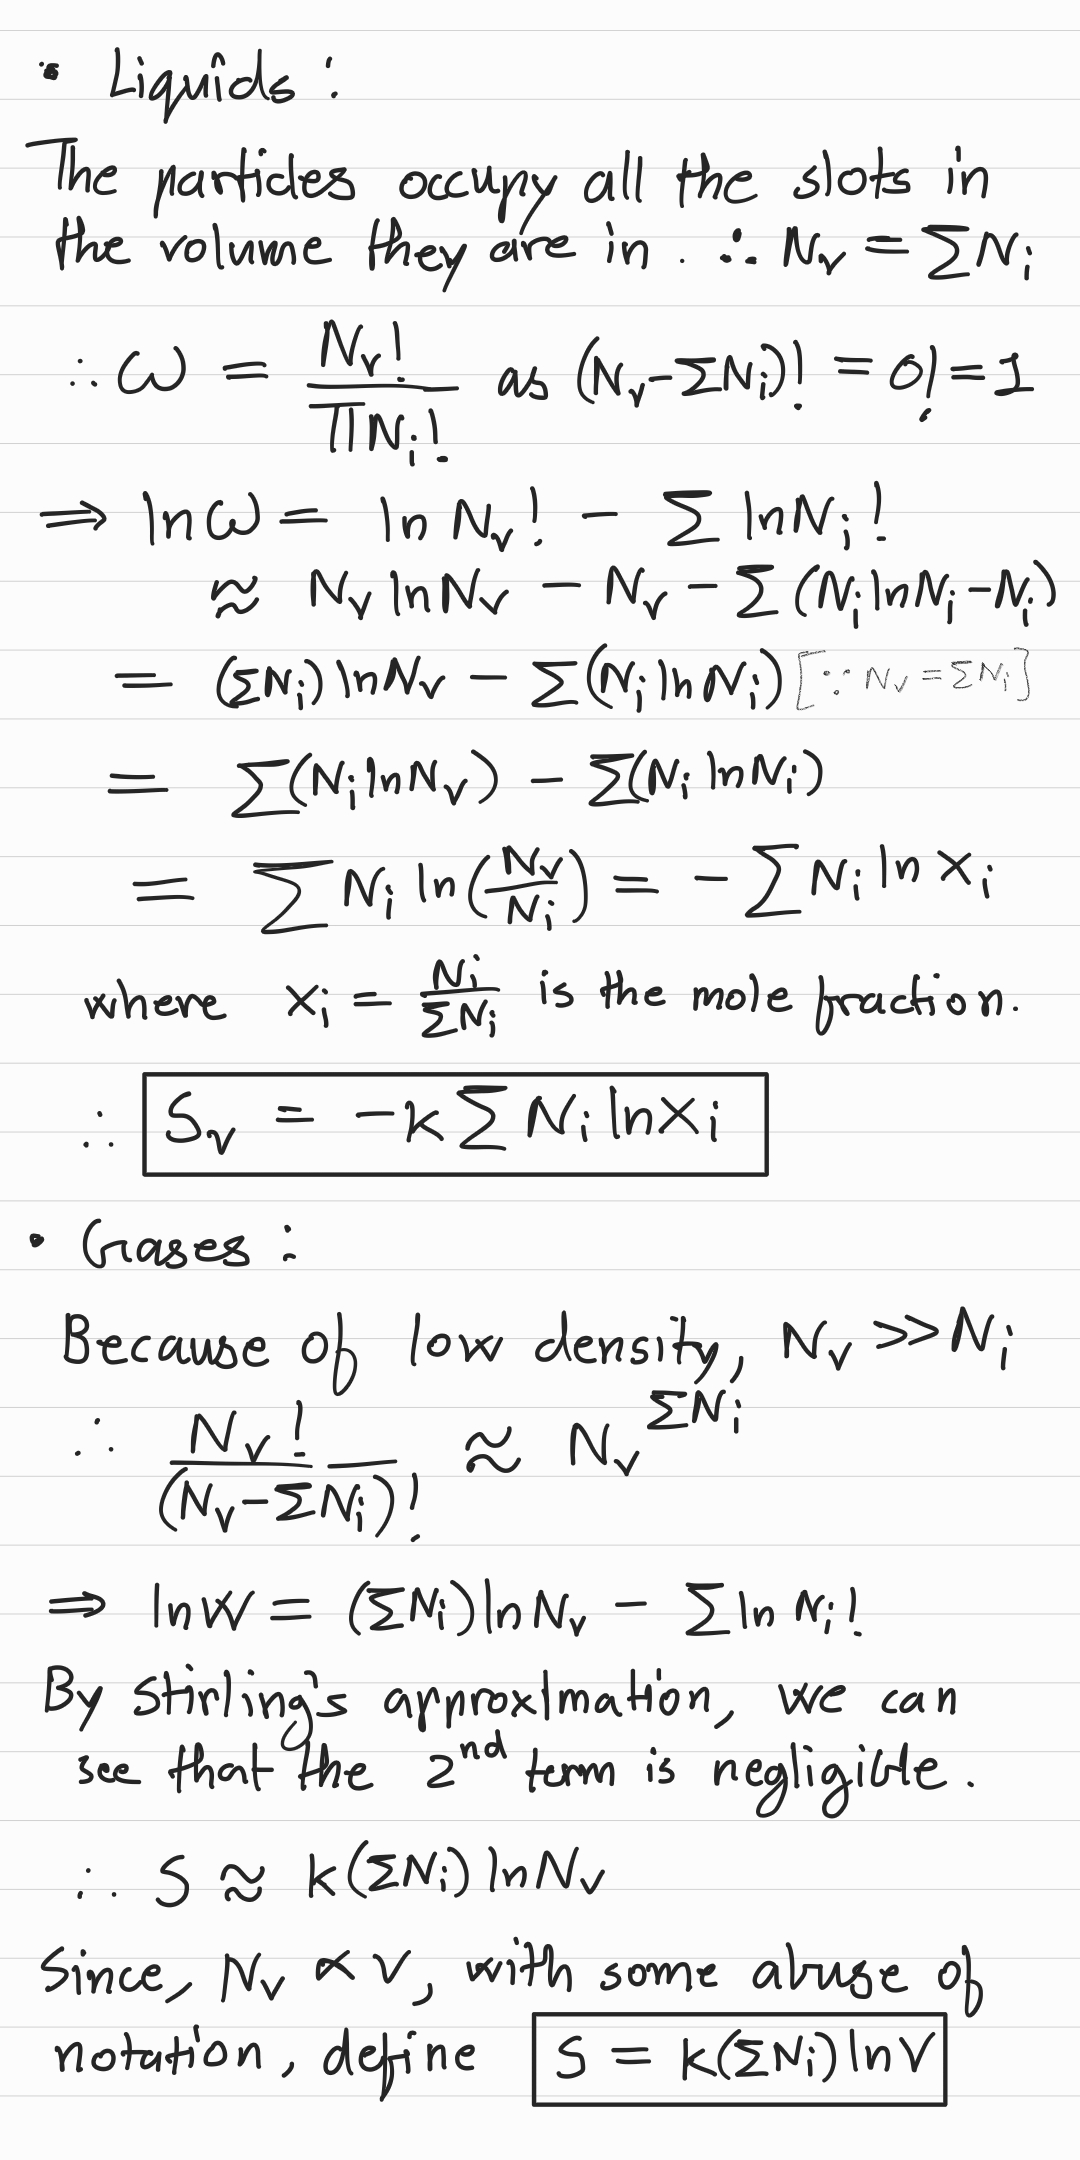 • Liquids :
The particles occupy all the slots in
the volume they are in . ∴ N_v = ΣN_i
∴ ω = N_v! / ΠN_i! as (N_v-ΣN_i)! = 0! = 1
⇒ lnω = ln N_v! - Σ lnN_i!
≈ N_v lnN_v - N_v - Σ (N_i lnN_i - N_i)
= (ΣN_i) lnN_v - Σ(N_i lnN_i) [∵ N_v = ΣN_i]
= Σ(N_i lnN_v) - Σ(N_i lnN_i)
= Σ N_i ln(N_v/N_i) = - Σ N_i ln x_i
where x_i = N_i/ΣN_i is the mole fraction.
∴ S_v = -k Σ N_i ln x_i
• Gases :
Because of low density, N_v >> N_i
∴ N_v! / (N_v - ΣN_i)! ≈ N_v^ΣN_i
⇒ lnW = (ΣN_i) lnN_v - Σ ln N_i!
By Stirling's approximation, we can
see that the 2nd term is negligible .
∴ S ≈ k(ΣN_i) lnN_v
Since, N_v ∝ V, with some abuse of
notation, define S = k(ΣN_i) lnV